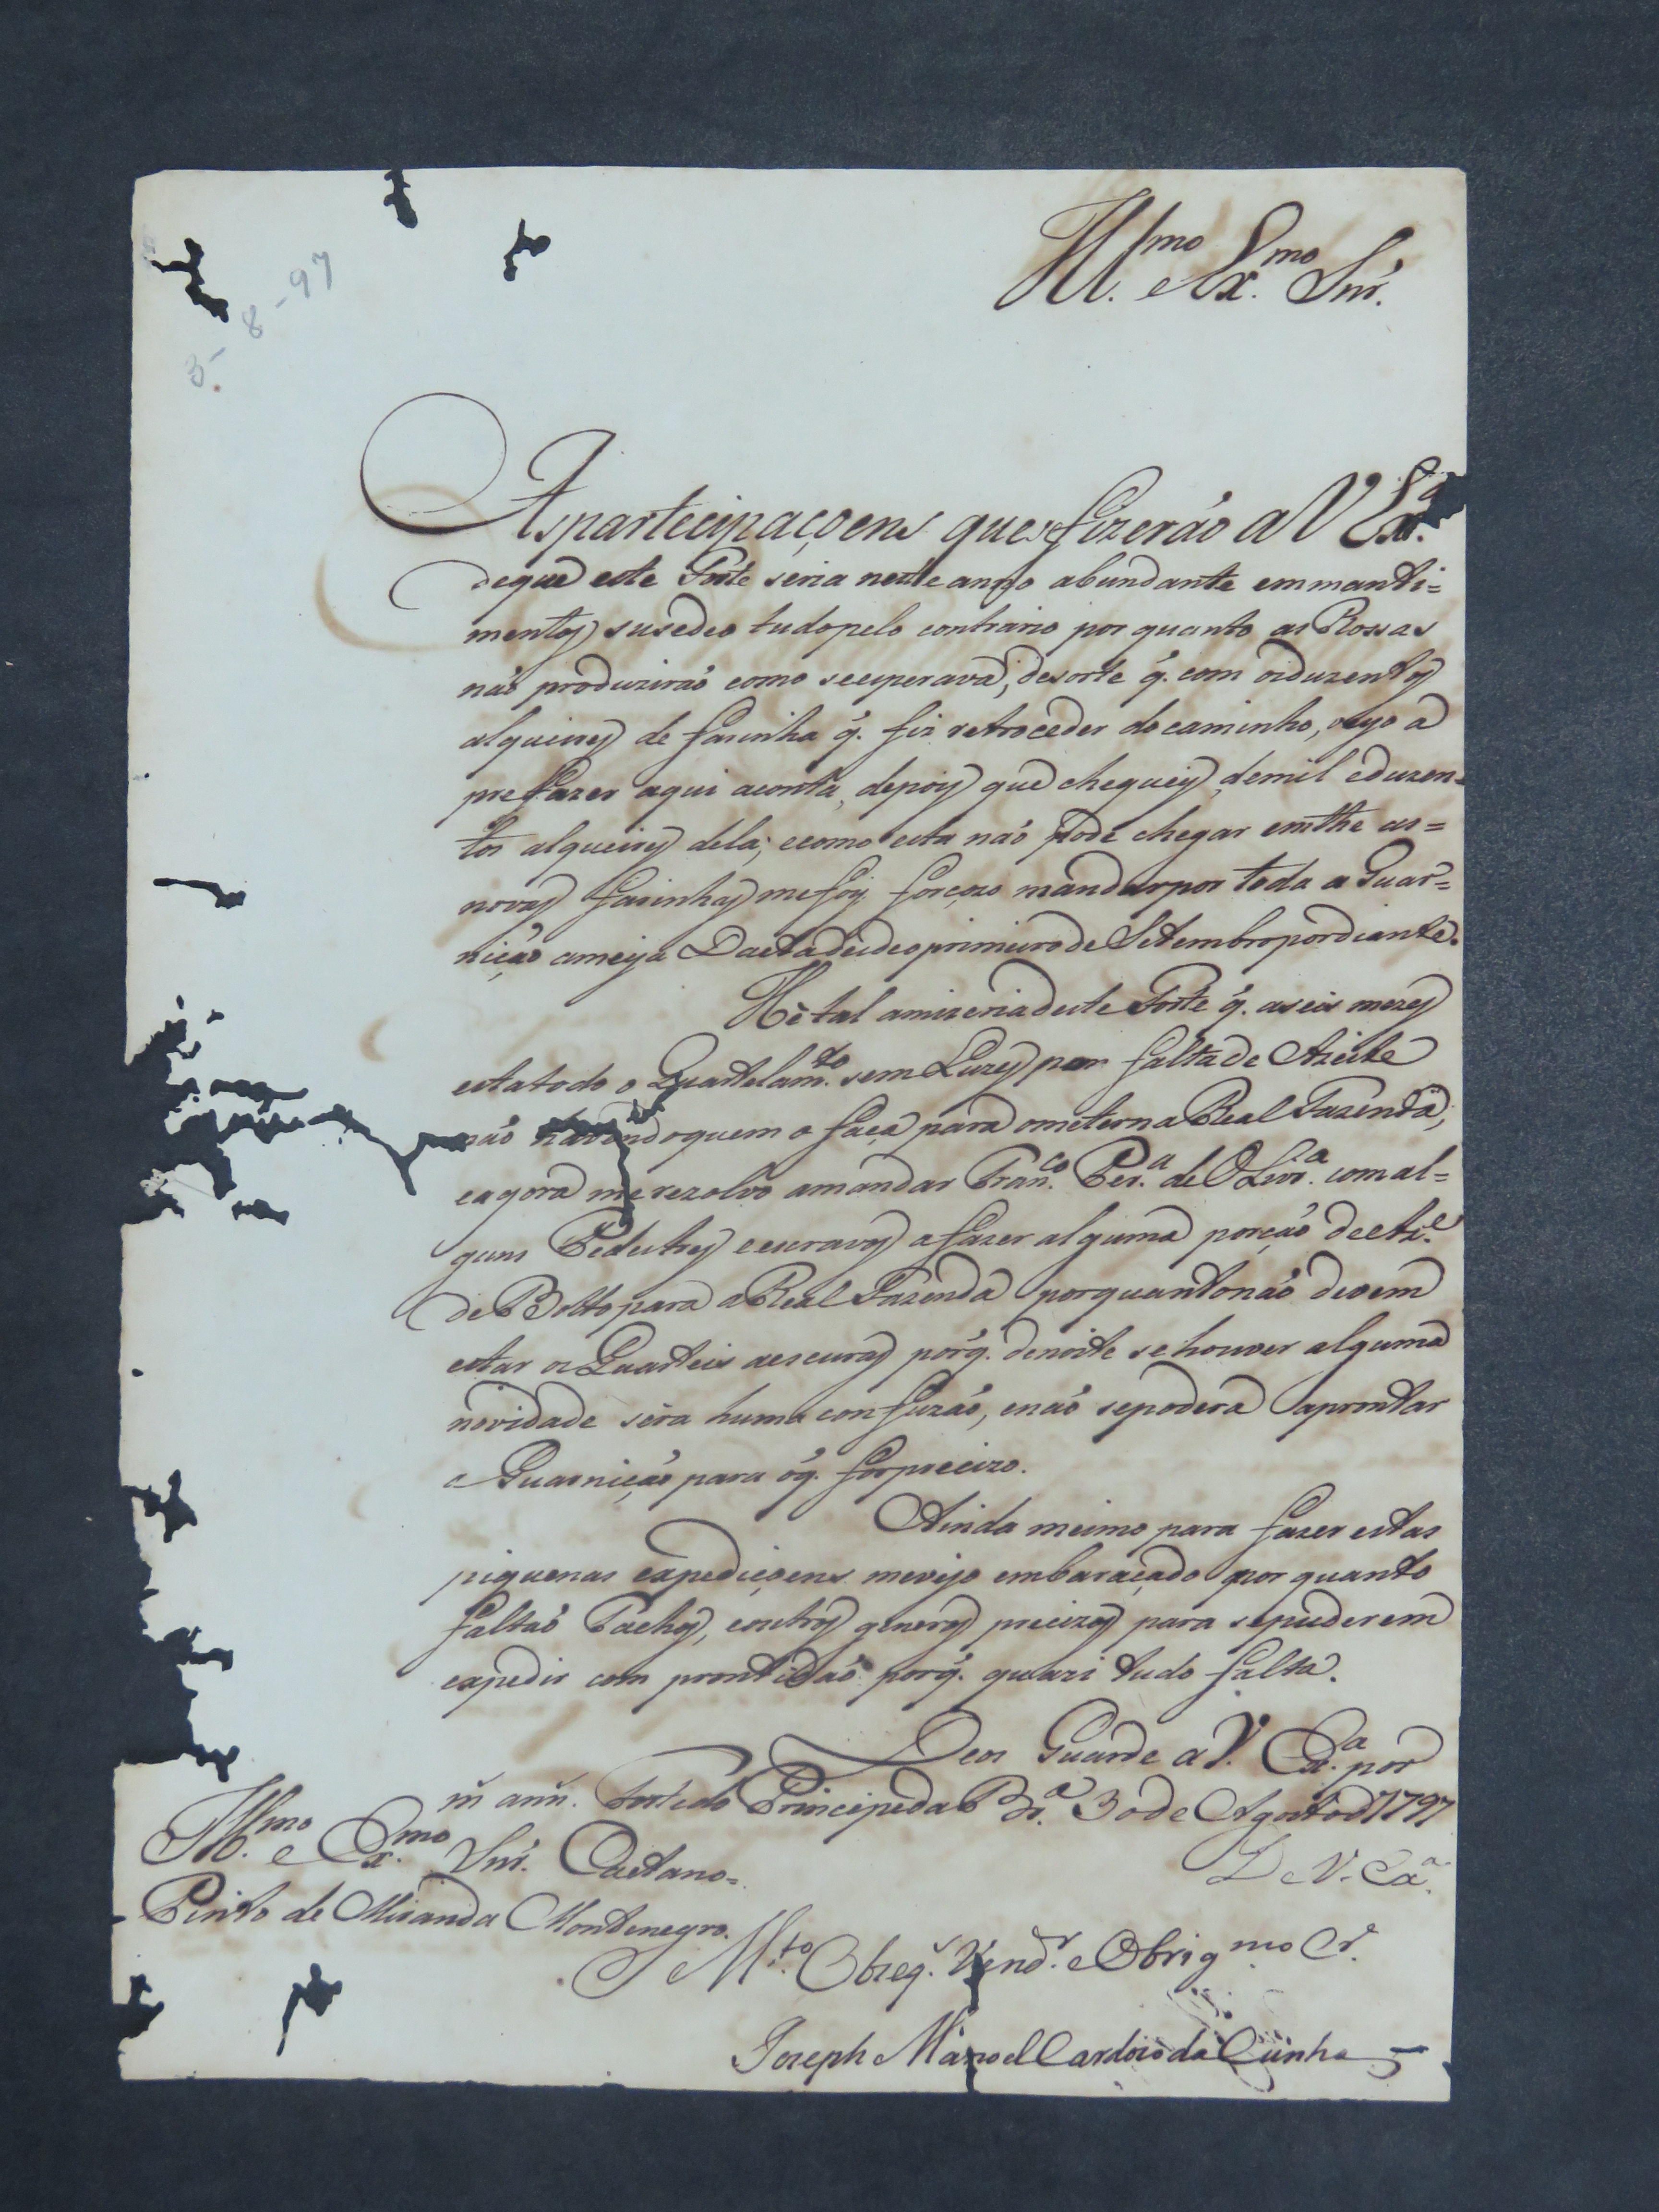 3-8-97
Ill.mo e Ex.mo Snr.
As partecipaçoens que se fizerão a V Ex.a
de que este Forte seria neste anno abundante em manti=
mentos susedeo tudo pelo contrario por quanto as Rossas
não produzirão como se esperava, de sorte q. com os duzentos
alqueires de farinha q. fiz retroceder do caminho, veyo a
prefazer aqui a conta, depois que cheguey, de mil e duzen=
tos alqueires dela; e como esta não pode chegar emthe as=
novas farinhas me foy forçozo mandar por toda a Guar=
nição a meya Data desde o primeiro de Setembro por diante.
Hè tal a mizeria deste Forte q. a seis mezes
esta todo o Quartelam.to sem Luzes por falta de Azeite
não havendo quem o faça para o meter na Real Fazenda,
e agora me rezolvo a mandar Fran.co Per.a de Olivr.a com al=
guns Pedestres e escravos a fazer alguma porção de Az.e
de Botto para a Real Fazenda porquanto não devem
estar os Quarteis as escuras porq. de noite se houver alguma
novidade sera huma confuzão, e não se podera aprontar
a Guarnição para o q. for precizo.
Ainda mesmo para fazer estas
piquenas expediçoens me vejo embaraçado por quanto
faltão Tachos, e outros generos precizos para se puderem
expedir com prontidão porq. quazi tudo falta.
Deos Guarde a V. Ex.a por
m ann. Forte do Principe da Br.a 3 de Agosto de 1797
Ill.mo e Ex.mo Snr. Caetano=
Pinto de Miranda Montenegro.
De V. Ex.a
M.to Obzeq. Vend.r e Obrig.mo Cr.
Joseph Manoel Cardozo da Cunha